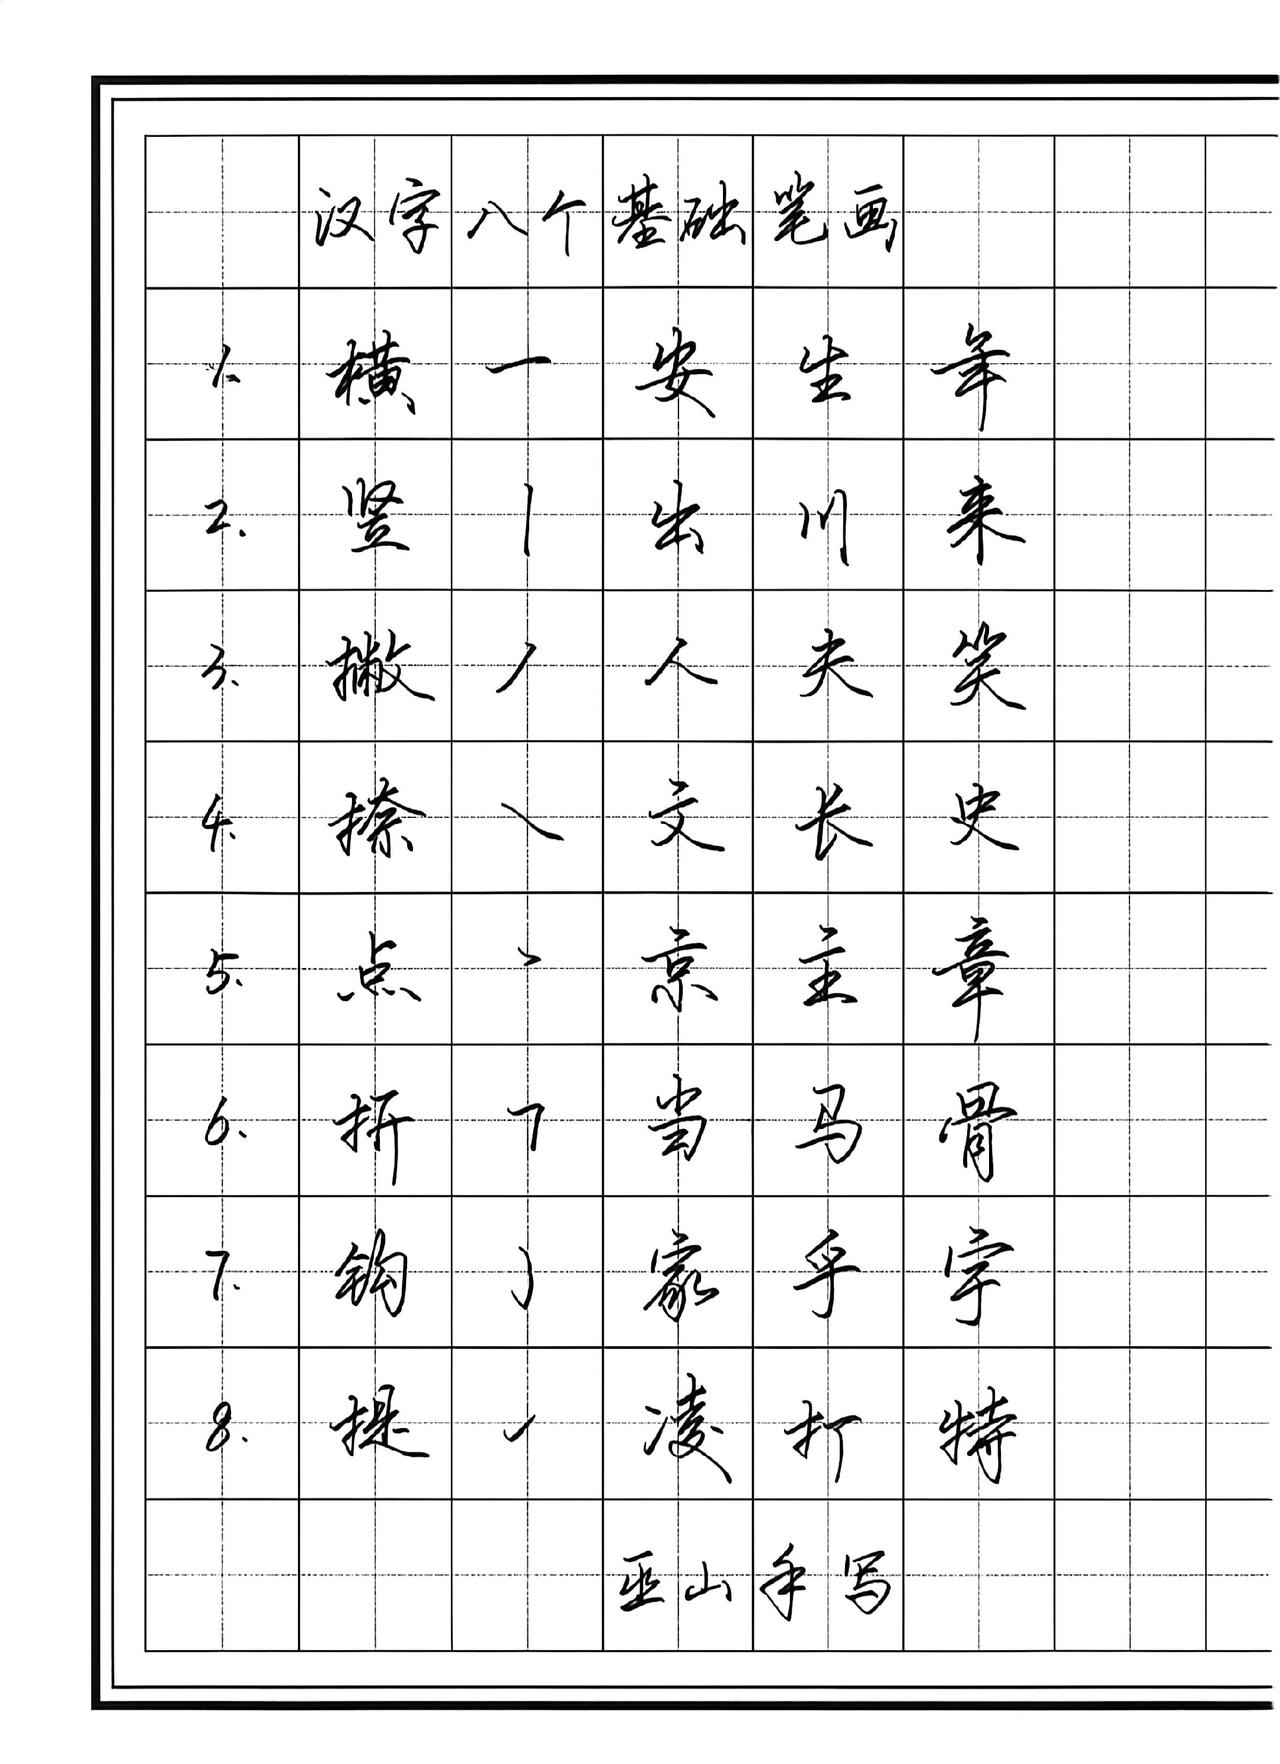 汉字八个基础笔画
1. 横 一 安 生 年
2. 竖 丨 出 川 来
3. 撇 丿 人 夫 笑
4. 捺 ㇏ 文 长 史
5. 点 丶 京 主 章
6. 折 𠃍 当 马 骨
7. 钩 亅 家 乎 字
8. 提 ㇀ 凌 打 特
巫山手写